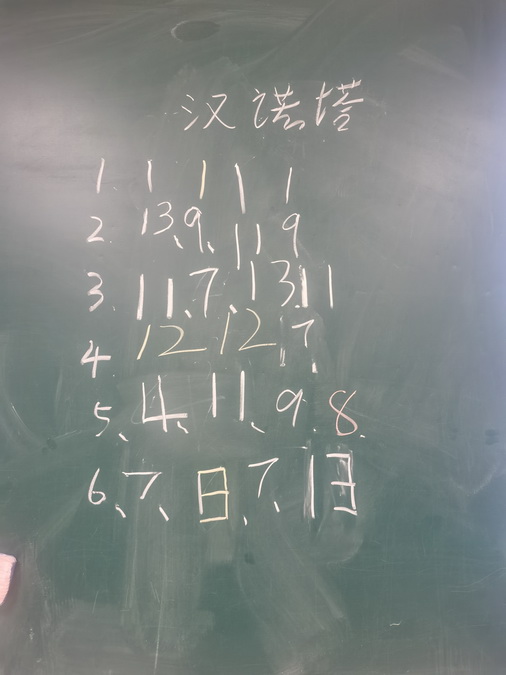 汉诺塔
1. 1 1 1 1
2. 13、9、11 9
3. 11、7、13、11
4. 12 12 7、
5、4、11、9. 8.
6、7、日、7、13